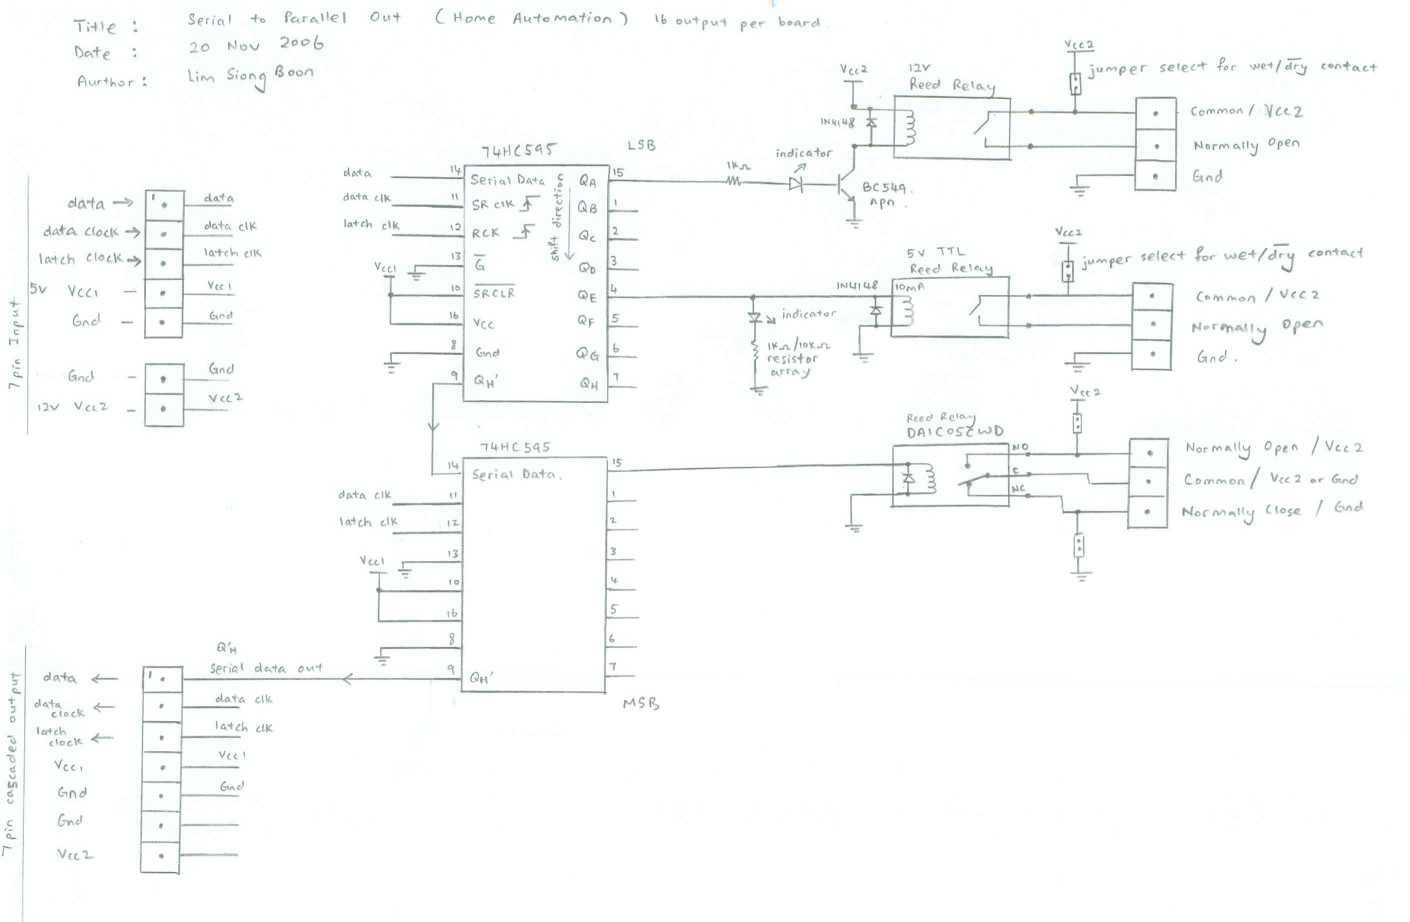 Title : Serial to Parallel Out ( Home Automation ) 16 output per board.
Date : 20 Nov 2006
Aurthor : Lim Siong Boon
7 pin Input
data →
data clock →
latch clock →
5V Vcc1 –
Gnd –
Gnd –
12V Vcc2 –
1
data
data clk
latch clk
Vcc1
Gnd
Gnd
Vcc2
74HC595
LSB
data
data clk
latch clk
Vcc1
14
11
12
13
10
16
8
9
Serial Data
SR clk
RCK
G̅
S̅R̅C̅L̅R̅
Vcc
Gnd
QH'
shift direction
QA
QB
QC
QD
QE
QF
QG
QH
15
1
2
3
4
5
6
7
1KΩ
indicator
BC549.
npn.
Vcc2
1N4148
12V
Reed Relay
Vcc2
jumper select for wet/d̅r̅y̅ contact
Common / Vcc2
Normally Open
Gnd
indicator
1KΩ/10KΩ
resistor
array
1N4148
5V TTL
Reed Relay
10mA
Vcc2
jumper select for wet/d̅r̅y̅ contact
Common / Vcc2
Normally Open
Gnd.
74HC595
data clk
latch clk
Vcc1
14
11
12
13
10
16
8
9
Serial Data.
QH'
15
1
2
3
4
5
6
7
MSB
Reed Relay
DA1C05CWD
NO
C
NC
Vcc2
Normally Open / Vcc2
Common / Vcc2 or Gnd
Normally Close / Gnd
7 pin cascaded output
data ←
data clock ←
latch clock ←
Vcc1
Gnd
Gnd
Vcc2
1
Q'H
Serial data out
data clk
latch clk
Vcc1
Gnd